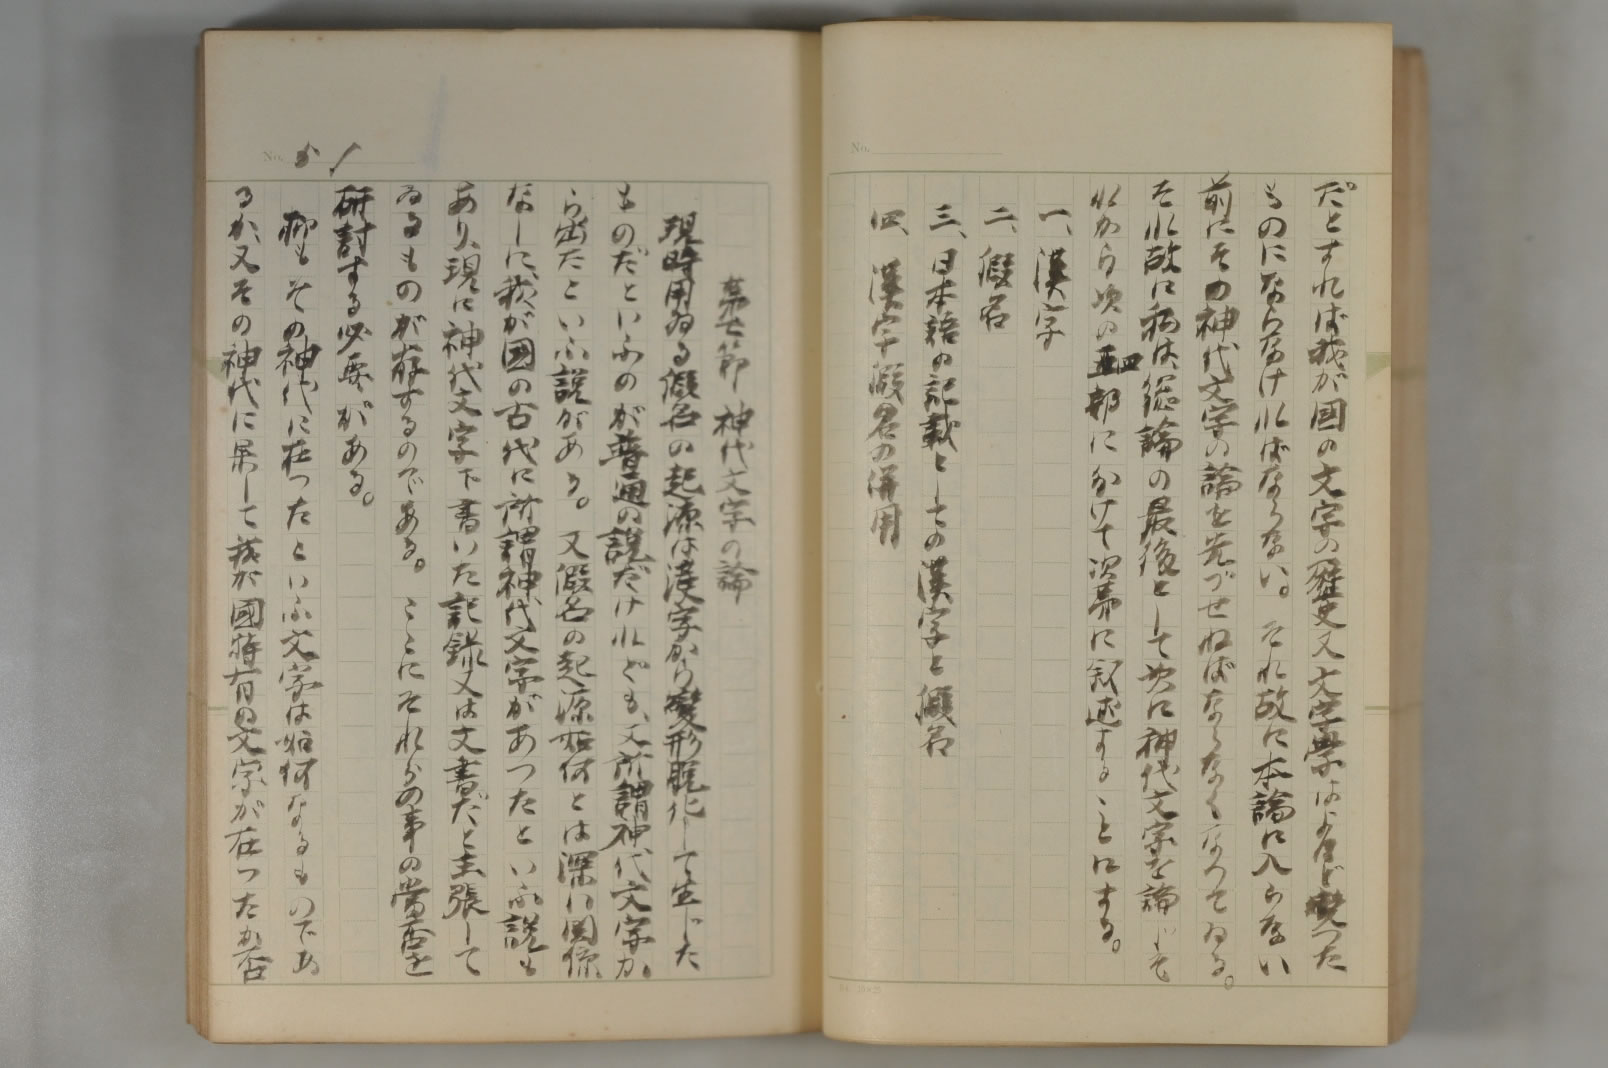 だとすれば我が國の文字の歴史又文字學はよほど變つた
ものにならなければならない。それ故に本論に入らない
前にその神代文字の論を先づせねばならなくなつてゐる。
それ故に私は總論の最後として次に神代文字を論じそ
れから次の四部にわけて次第に敍述することにする。
一、漢字
二、假名
三、日本語の記載としての漢字と假名
四、漢字假名の併用
No.
No. 10×25
No. 51
第七節 神代文字の論
現時用ゐる假名の起源は漢字から變形脱化して生じた
ものだといふのが普通の説だけれども、又所謂神代文字か
ら出たといふ説がある。又假名の起源如何とは深い関係
なしに、我が國の古代に所謂神代文字があつたといふ説も
あり、現に神代文字で書いた記録又は文書だと主張して
ゐるものが存するのである。ここにそれらの事の當否を
研討する必要がある。
抑もその神代に在つたといふ文字は如何なるものであ
るか、又その神代に果して我が國特有の文字が在つたか否